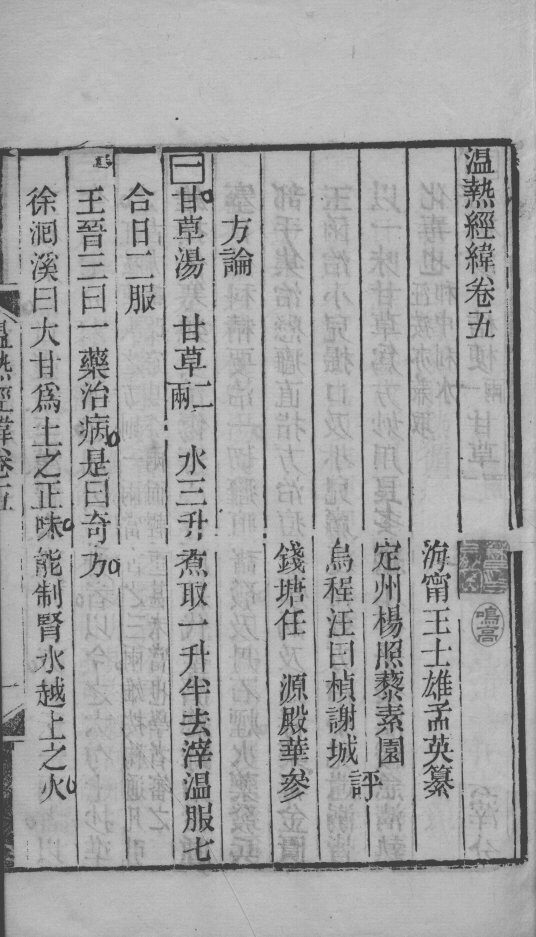 温熱經緯卷五
海甯王士雄孟英纂
定州楊照藜素園
烏程汪曰楨謝城評
錢塘任　源殿華參
方論
一甘草湯　甘草二兩　水三升煮取一升半去滓溫服七
合日二服
王晉三曰一藥治病是曰奇方
徐洄溪曰大甘爲土之正味能制腎水越上之火
温熱經緯卷五
一
鳴高